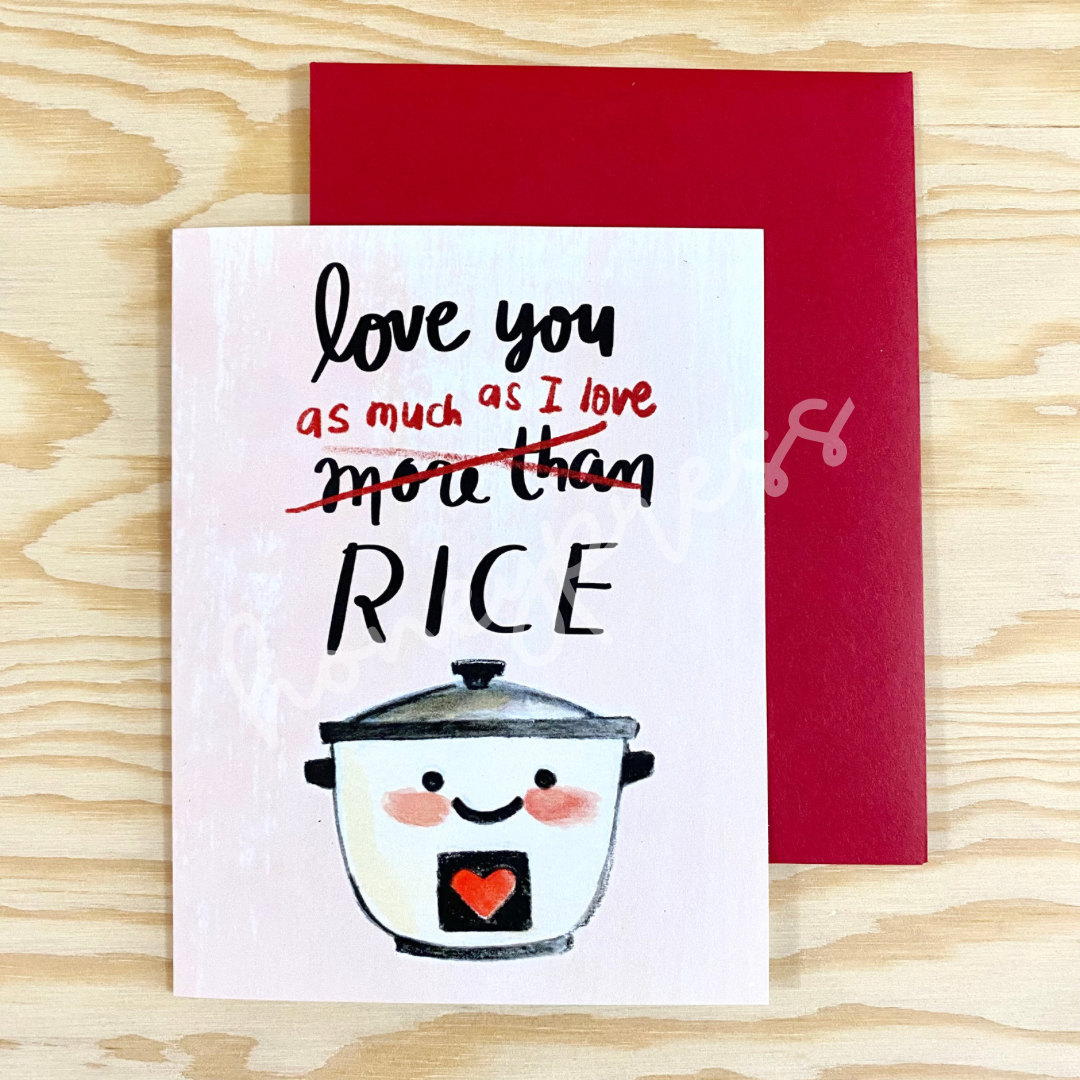 love you
as much as I love
more than
RICE
honeypress